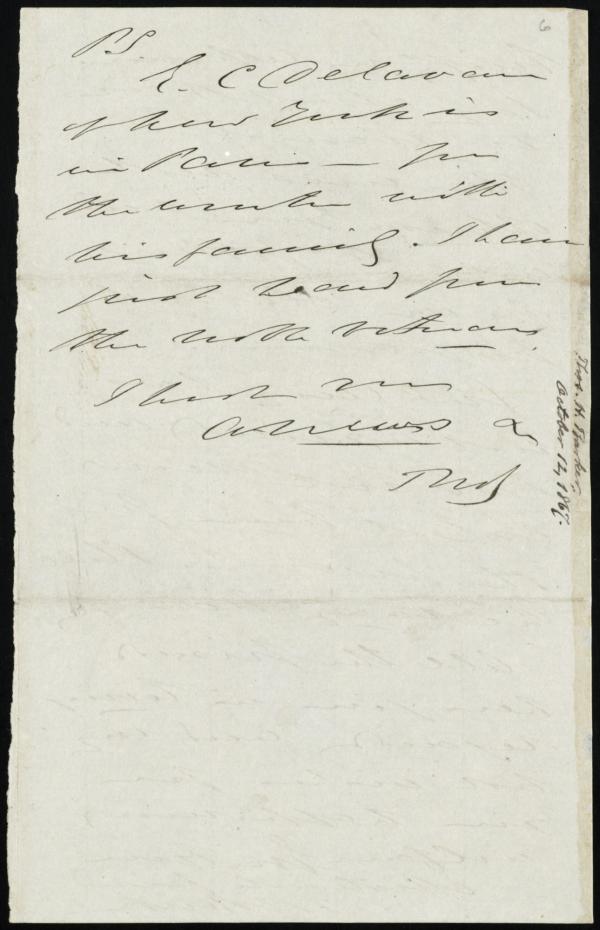 6
P.S.
E. C Delavan
of New York is
in Paris — for
the winter with
his family. I have
just heard from
the noble veteran.
I hash
&
Thos. H. Barker,
October 12, 1867.